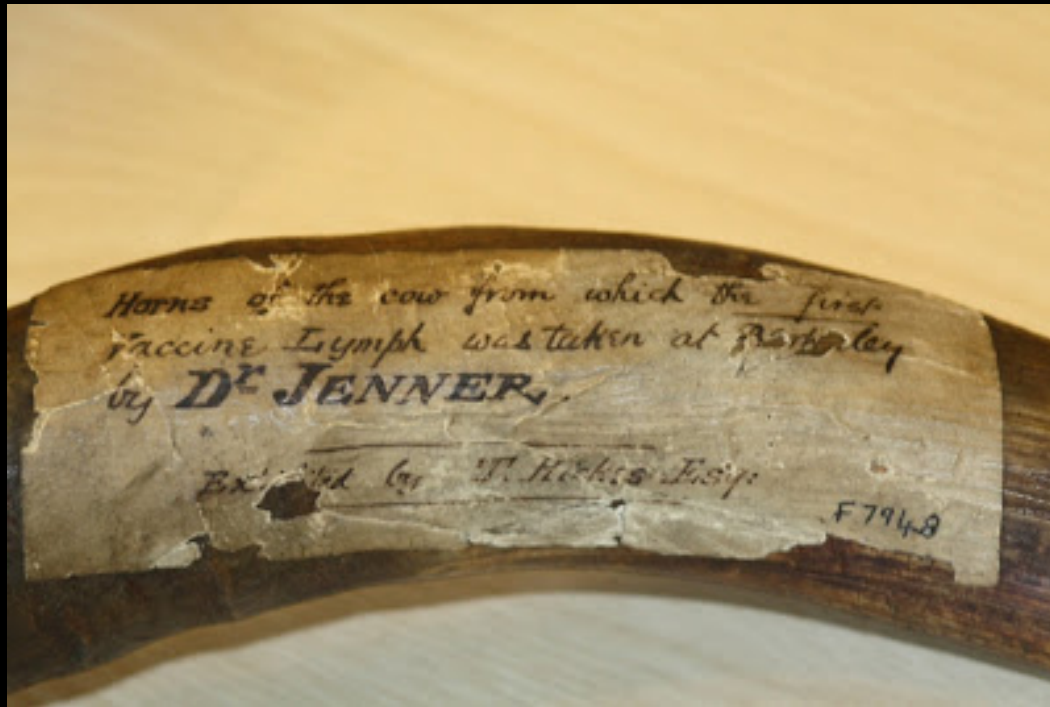 Horns of the cow from which the first
Vaccine Lymph was taken at Berkeley
by Dr JENNER.
Exhibited by T. Hickes Esq:
F7948